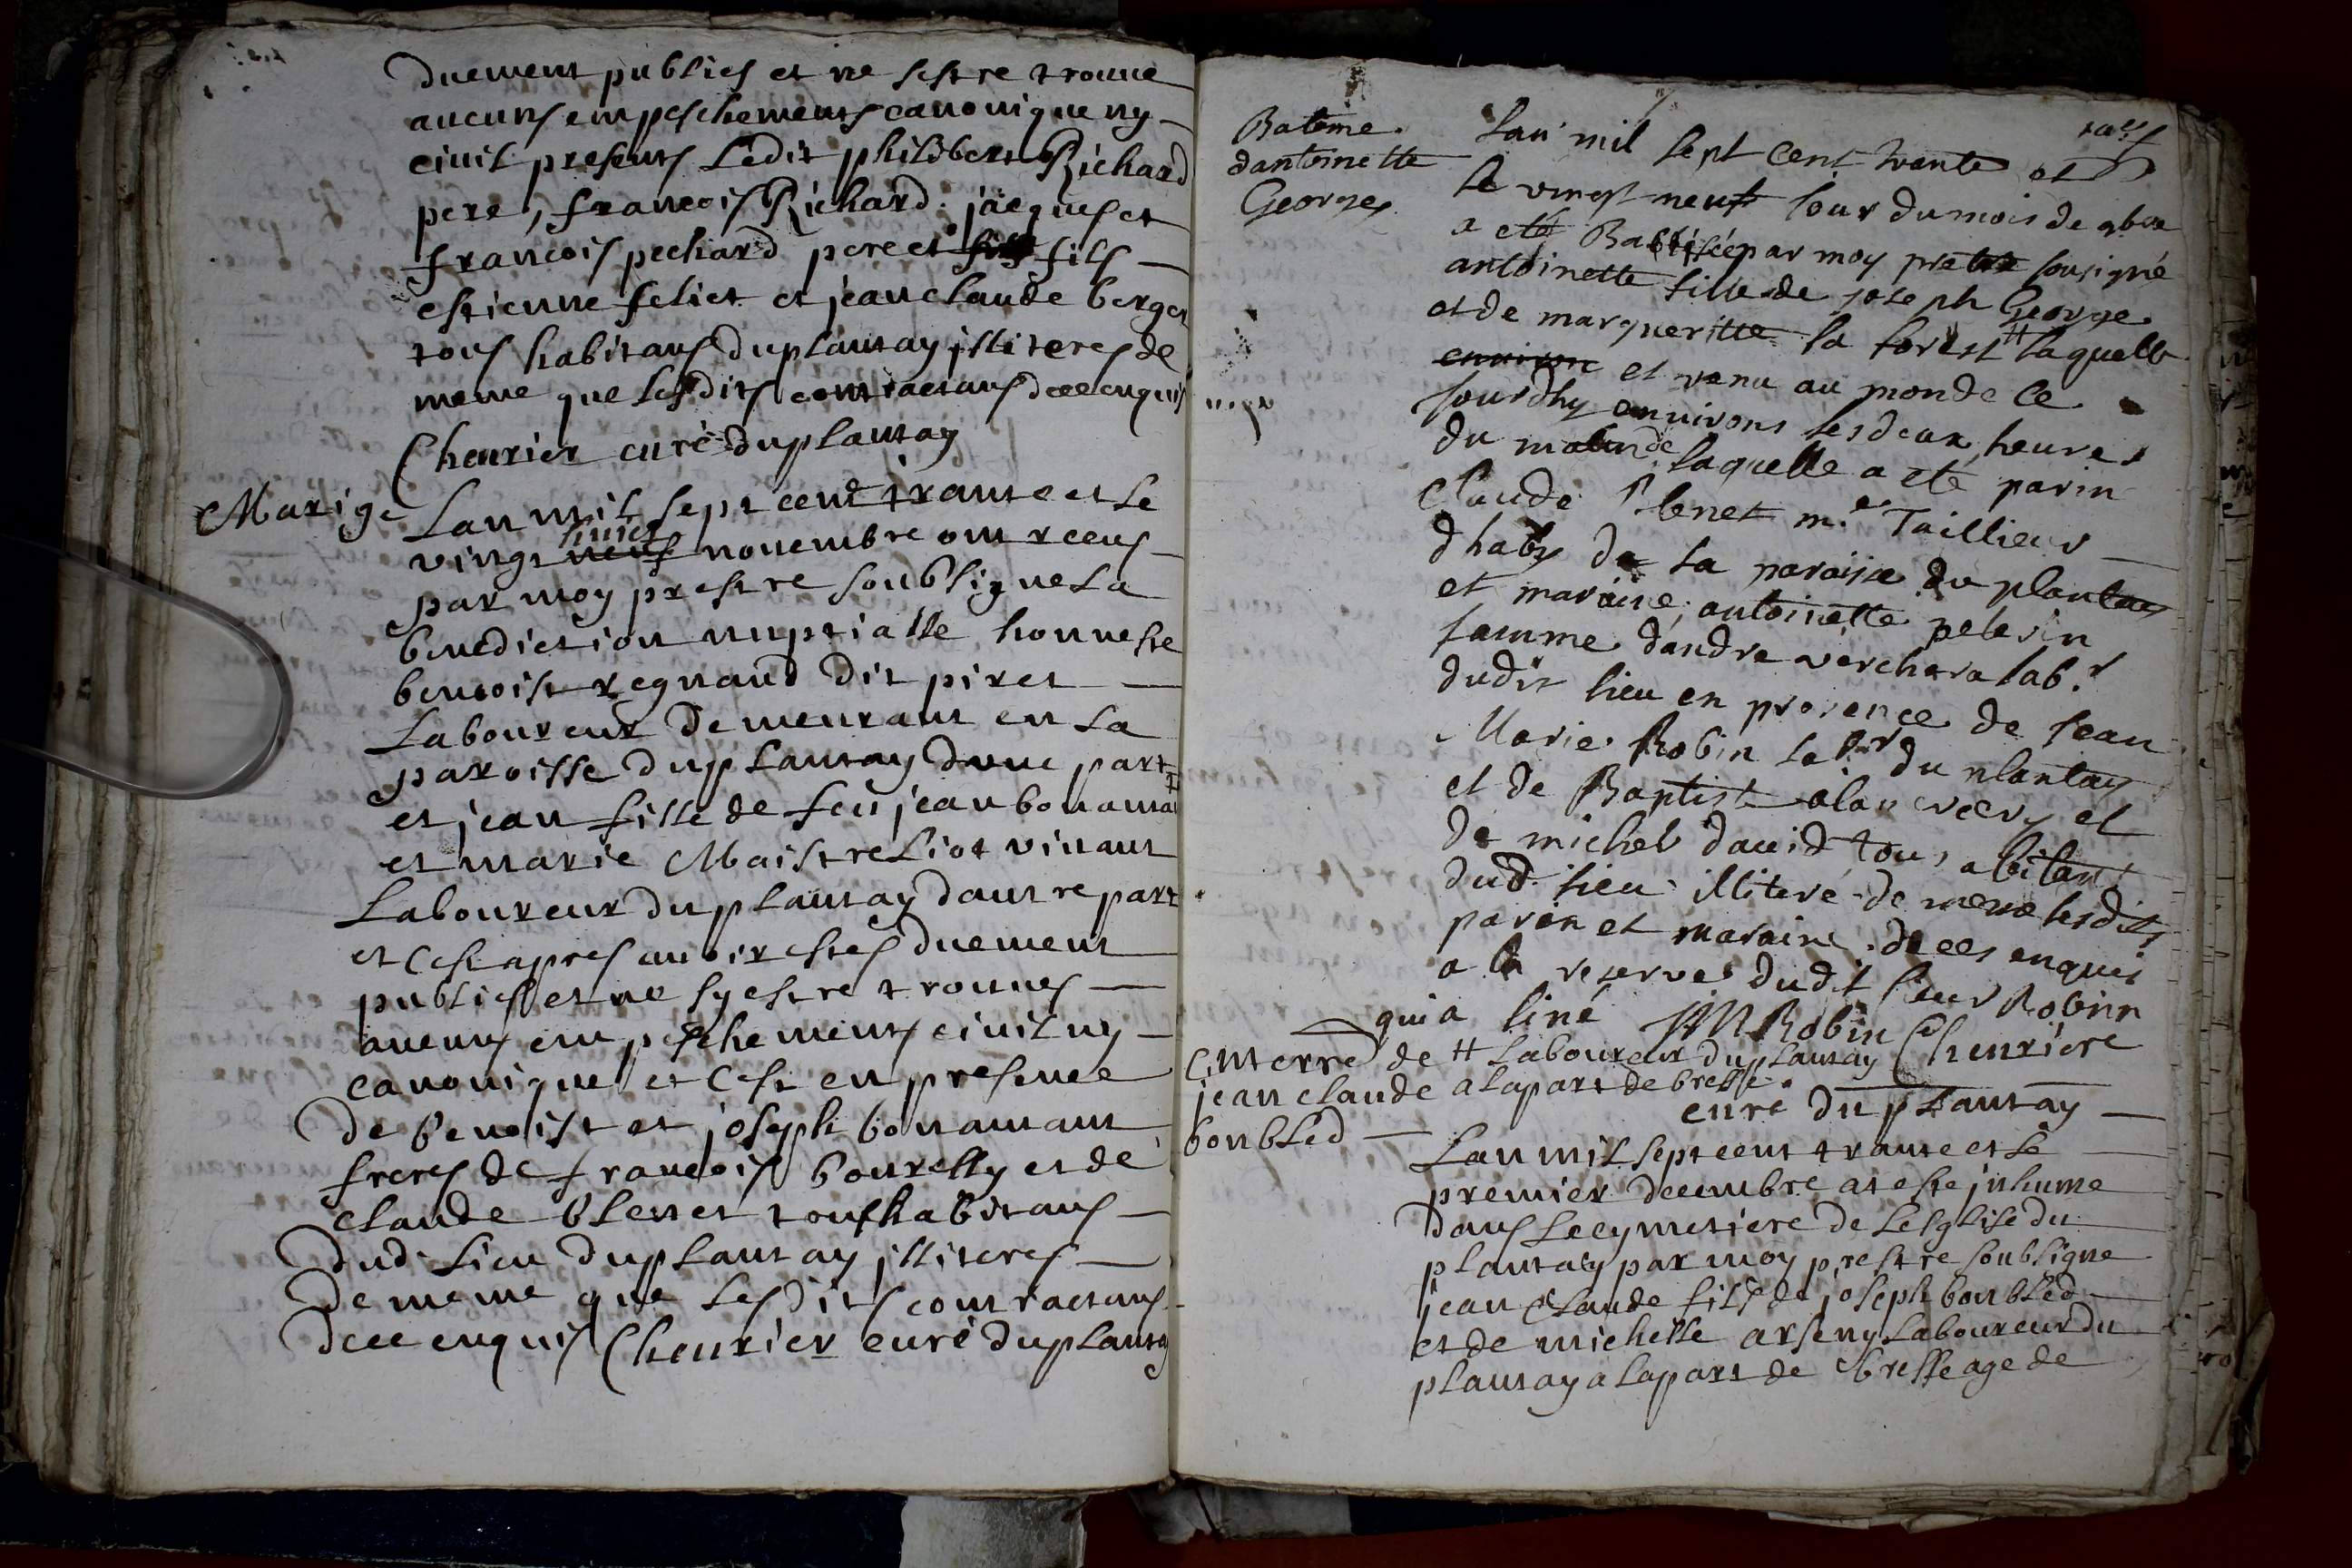 duement publies et ne sest re trouue
aucuns empeschements canonique ny
ciuil presents Ledit philibert Richard
pere, francois Richard jacques et
francois pechard pere et fils
estienne feliet et jean claude berger
tous habitans du plantay illiteres de
meme que lesdits contractans de ce enquis
Cheurier curé du plantay
Marige
Lan mil sept cent trante et le
huict
vingt neuf nouembre ont receus
par moy prestre soubsigne La
benediction nuptialle honneste
benoist regnaud dit piret
Laboureur demeurant en La
paroisse du plantay dune part
et jean fille de feu jean bonama
et marie Maistre Liot viuant
Laboureur du plantay dautre part
et Cest apres auoir estes duement
publies et ne sy est re trouues
aucuns empeschements ciuil ny
canonique et Cest en presence
de benoist et joseph bonamant
freres de francois bourelly et de
claude blenet tous habitans
dud Lieu du plantay illiteres
de meme que Lesdits contractans
de ce enquis Cheurier curé du planta
Bateme
dantoinette
Georges
Lan mil sept cent trante et
le vingt neuf iour du mois de 9bre
a eté Battisée par moy pretre sousigné
antoinette fille de joseph George
et de margueritte la forest # laquelle
environ et venu au monde ce
jourdhy anuirons les deux heures
du matin de laquelle a eté parin
Claude blenet m.e Taillieur
dhabs de la paroisse du plantay
et maraine antoinette pelerin
famme dandre verchera lab.r
dudit lieu en presence de jean
Marie Robin labr du plantay
et de Baptist
de michel dauid tous abitant
dud. lieu illiteré de meme lesdits
parin et maraine de ces enquis
a la reserve dudit sieur Robin
qui a siné JM Robin Cheurier
# Laboureur du plantay
a la part de bresse
curé du plantay
Enterre de
jean claude
bonbled
Lan mil sept cent trante et le
premier decembre at este inhume
dans le cymetiere de Lesglise du
plantay par moy prestre soubsigne
jean Claude fils de joseph bonbled
et de michelle arseny Laboureur du
plantay a La part de bresse age de